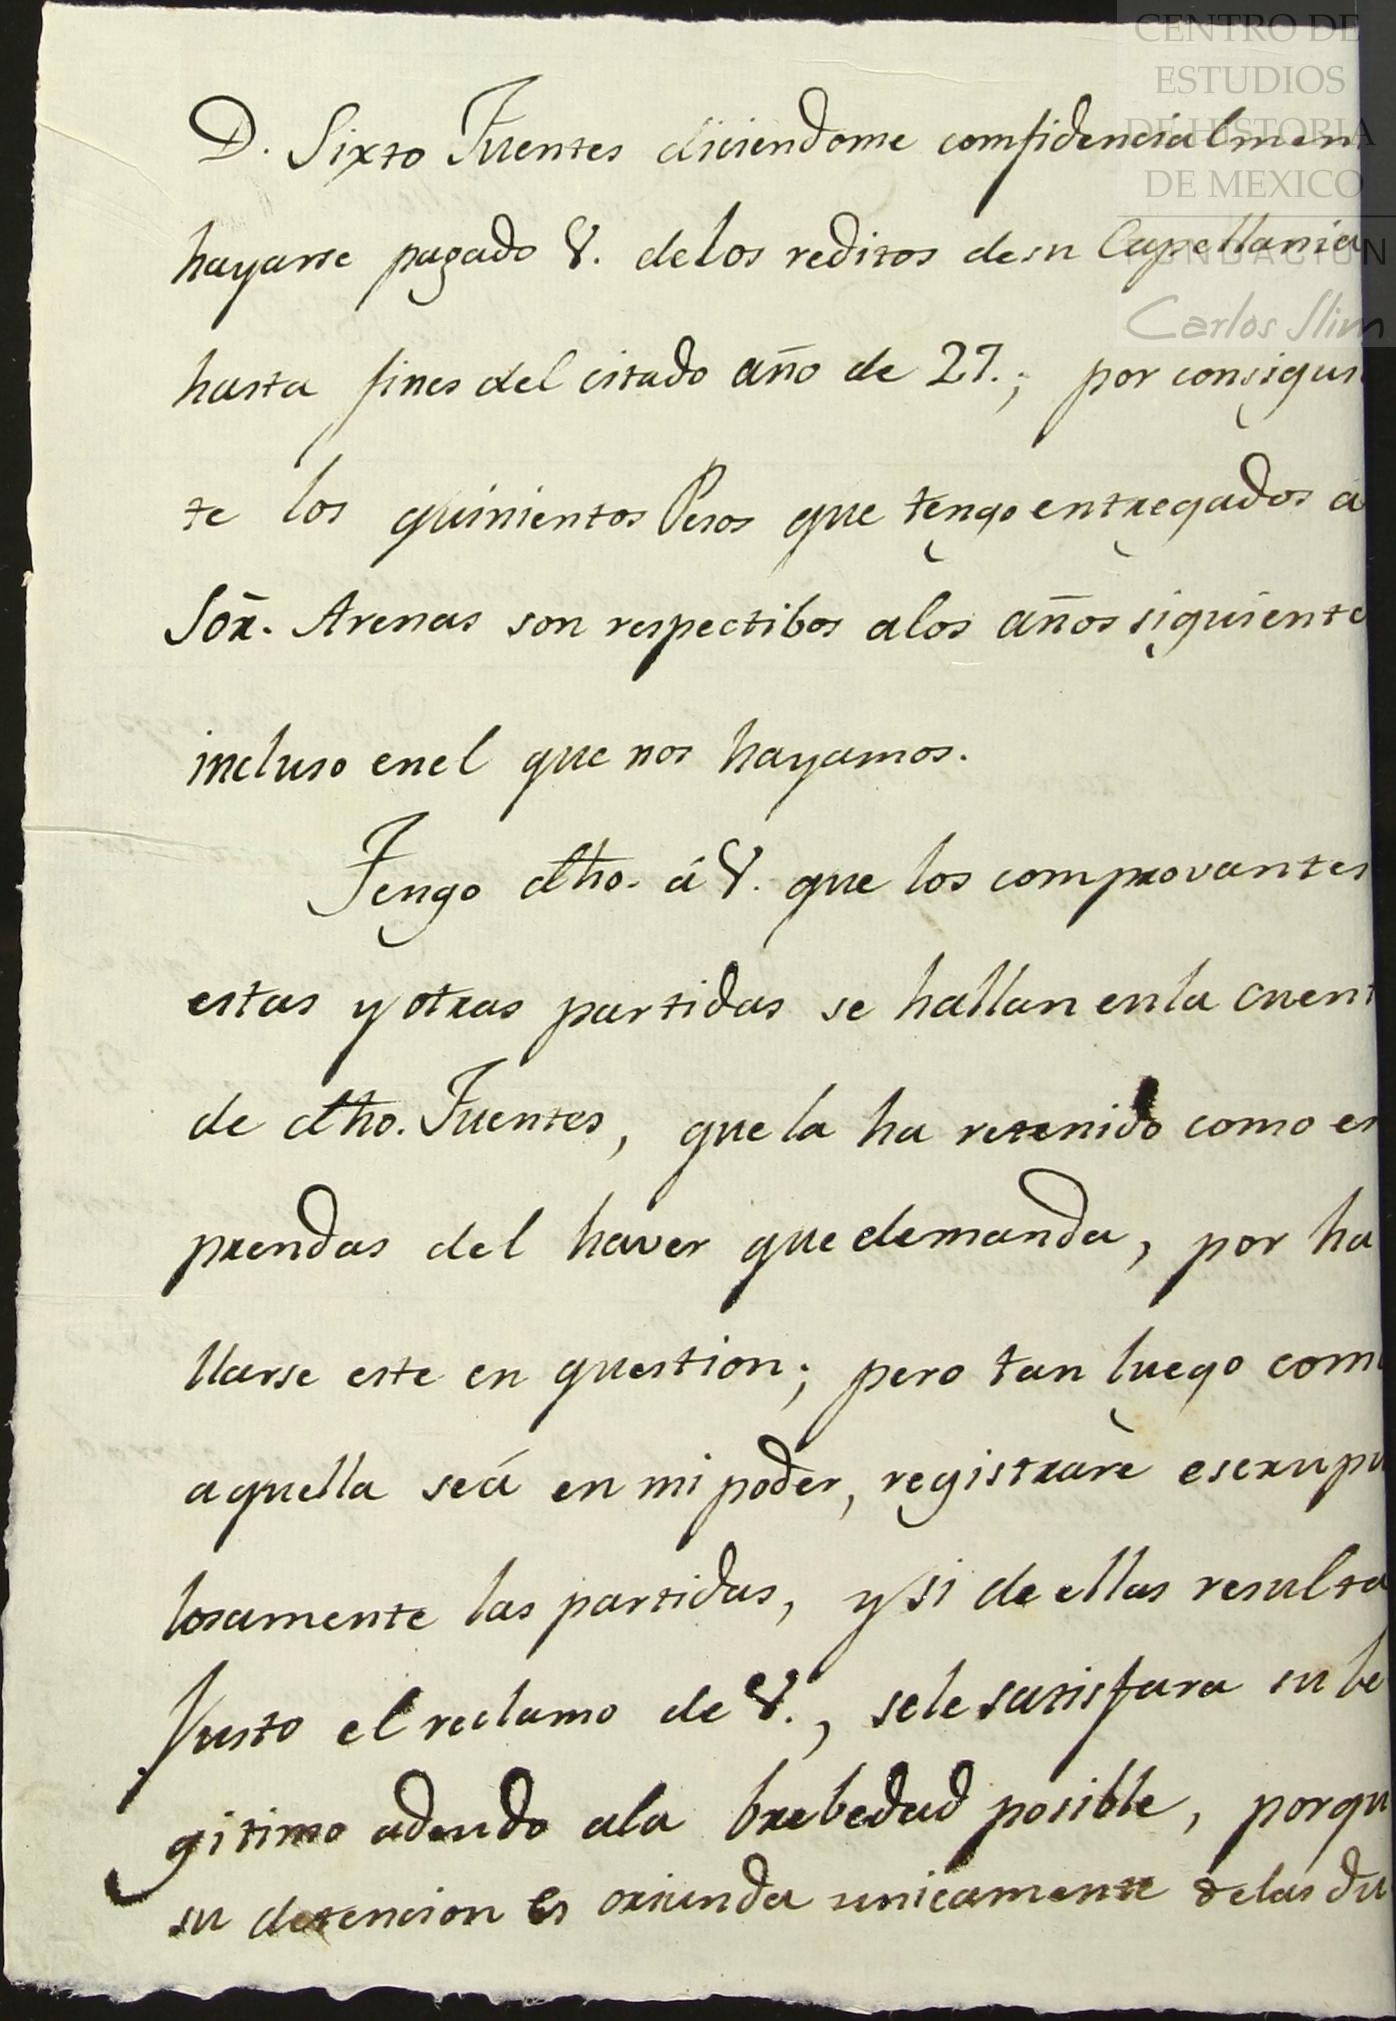 CENTRO DE
ESTUDIOS
DE HISTORIA
DE MEXICO
FUNDACIÓN
Carlos Slim
D. Sixto Fuentes diciendome comfidencialmen
hayarse pagado V. delos reditos desu Capellania
hasta fines del citado año de 27.; por consiguien
te los quinientos Pesos que tengo entregados a
Sõr. Arenas son respectibos alos años siguiente
incluso enel que nos hayamos.
Tengo dho. á V. que los comprovantes
estas y otras partidas se hallan enla cuent
de dho. Fuentes, que la ha retenido como en
prendas del haver que demanda, por ha
llarse este en question; pero tan luego como
aquella seá en mi poder, registrarè escrupu
losamente las partidas, y si de ellas resulta
Justo el reclamo de V., sele satisfara su le
gitimo adeudo ala brebedad posible, porqu
su detencion es oriunda unicamente delas du